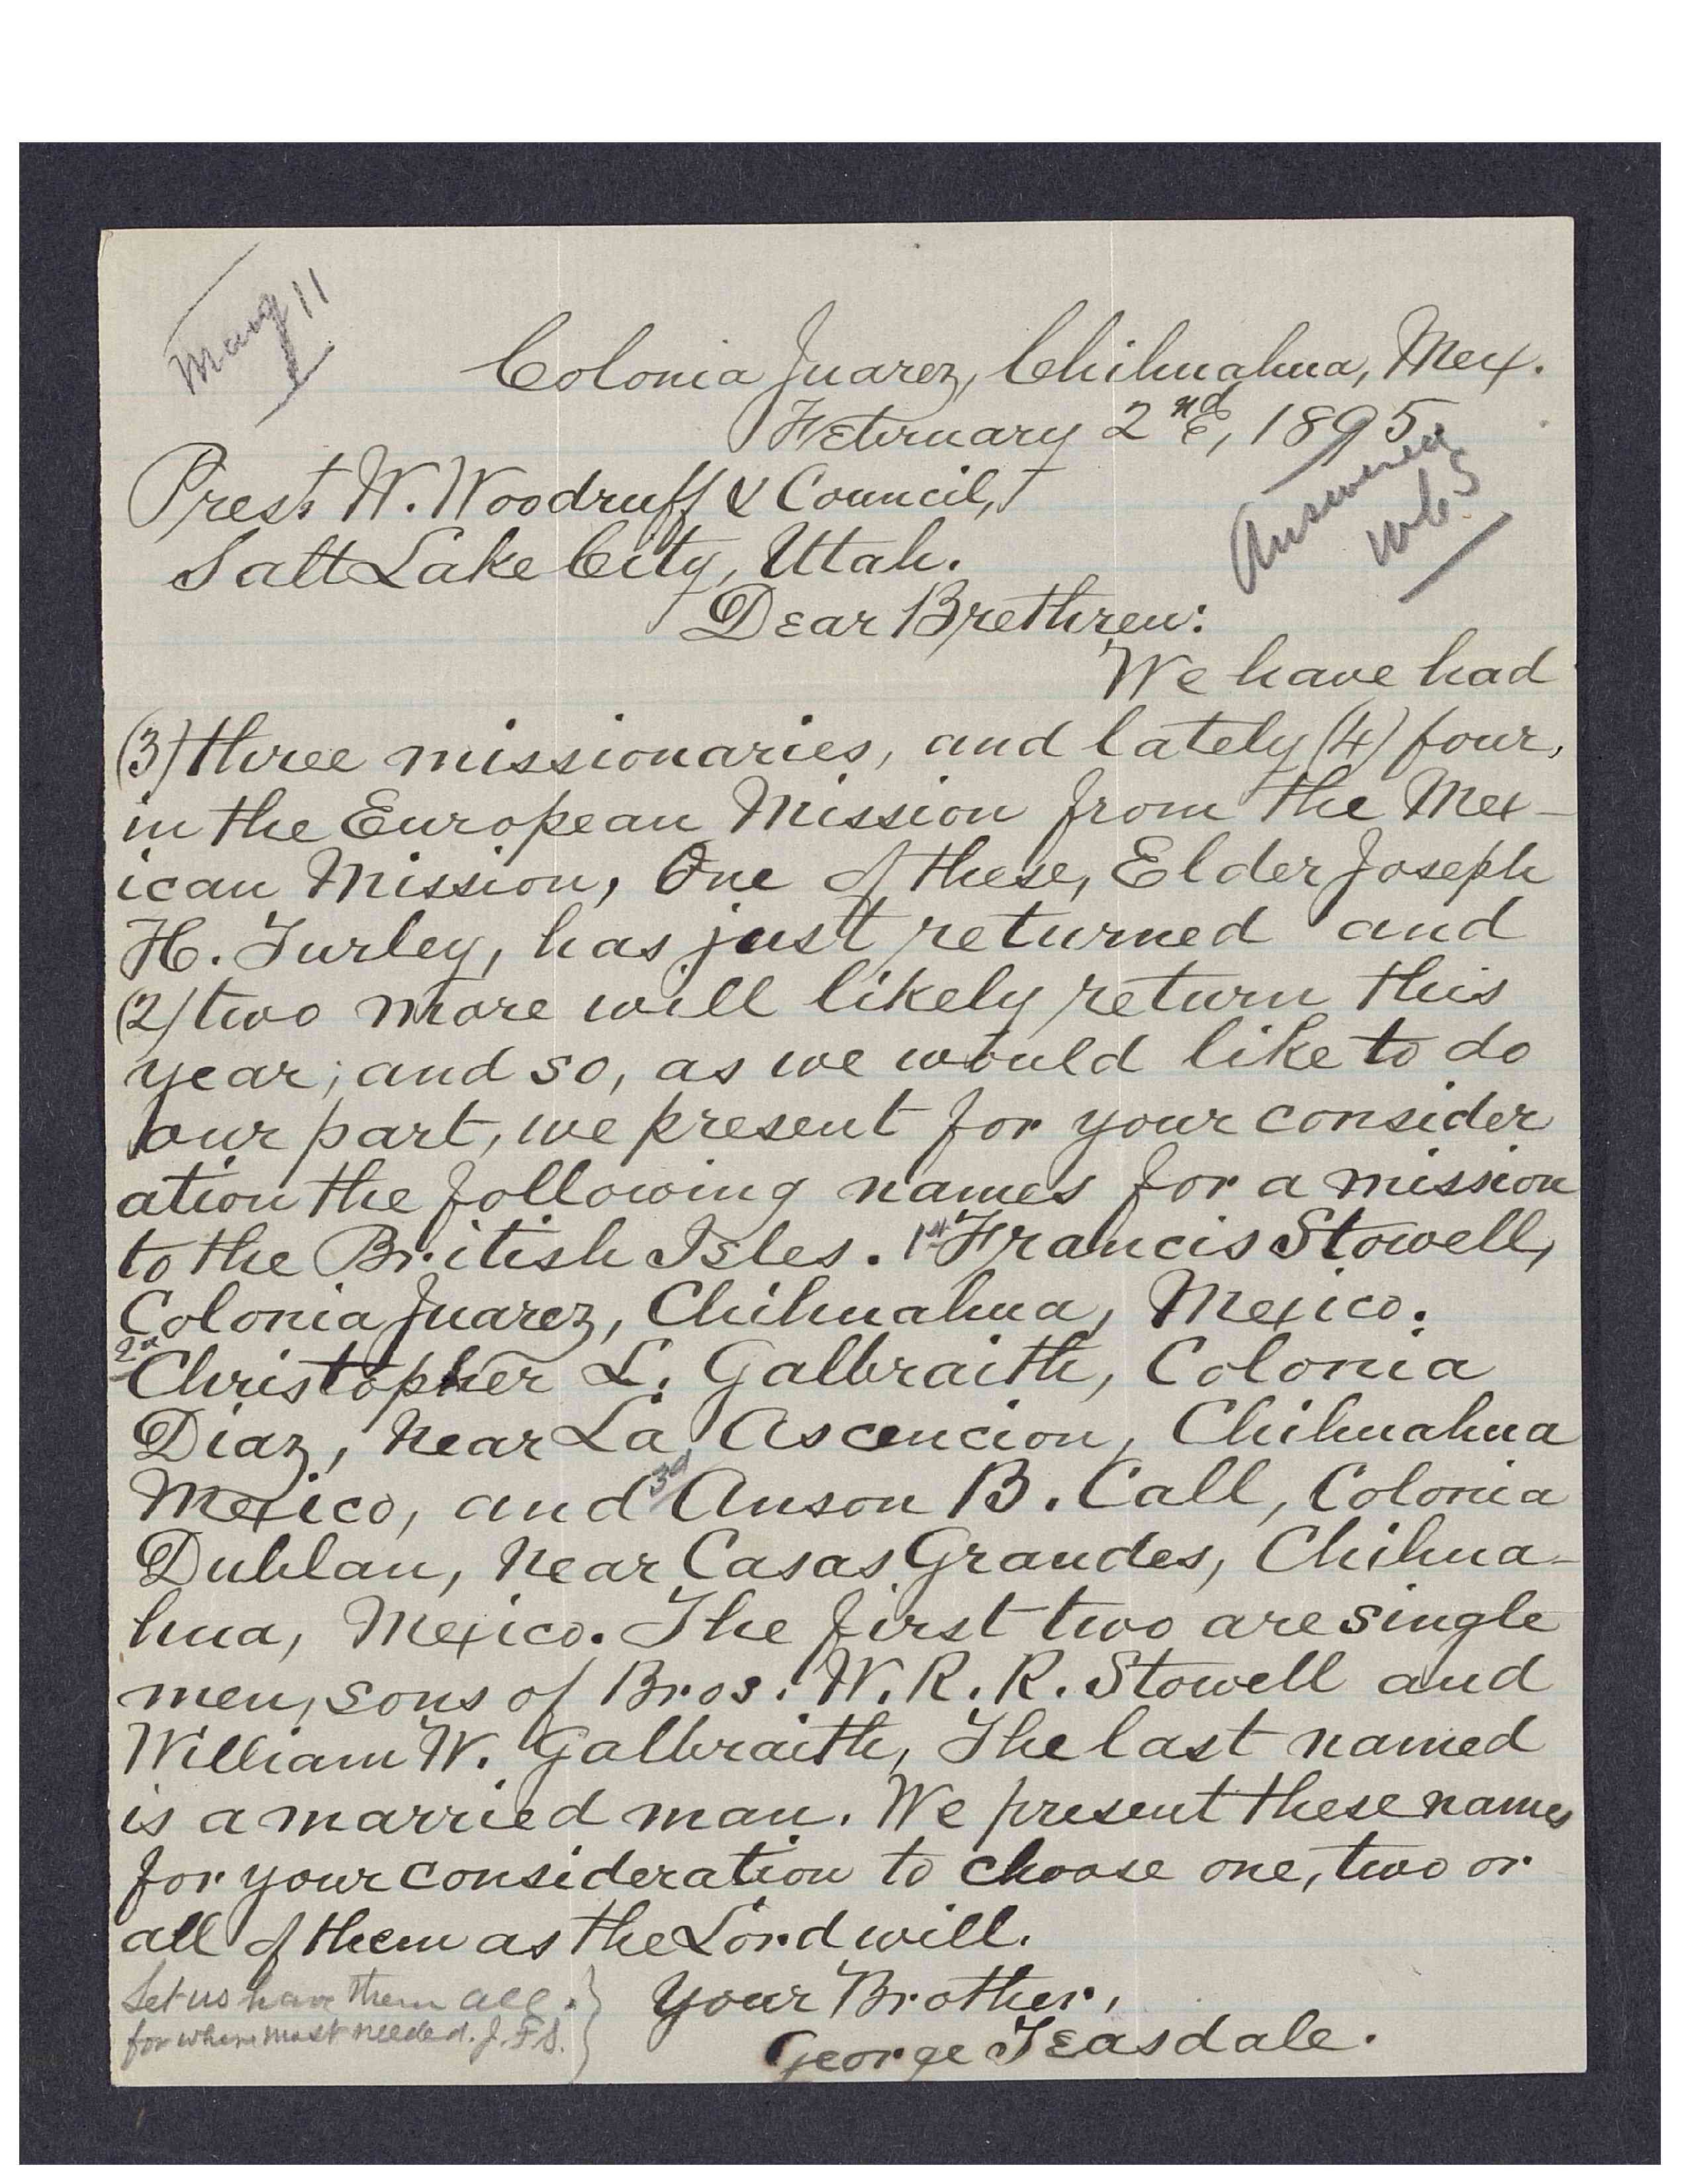 May 11
Colonia Juarez, Chihuahua, Mex.
February 2nd, 1895.
Answered
Prest W. Woodruff & Council,
Salt Lake City, Utah.
Dear Brethren:
We have had
(3) three missionaries, and lately (4) four,
in the European Mission from the Mex-
ican Mission, One of these, Elder Joseph
H. Turley, has just returned and
(2) two more will likely return this
year; and so, as we would like to do
our part, we present for your consider
ation the following names for a mission
to the British Isles. 1st Francis Stowell,
Colonia Juarez, Chihuahua, Mexico.
2d Christopher L. Galbraith, Colonia
Diaz, near La Ascencion, Chihuahua
Mexico, and 3d Anson B. Call, Colonia
Dublan, near Casas Grandes, Chihua-
hua, Mexico. The first two are single
men, sons of Bros. W. R. R. Stowell and
William W. Galbraith, The last named
is a married man. We present these names
for your consideration to choose one, two or
all of them as the Lord will.
Your Brother,
George Teasdale.
Let us have them all.
for where most needed. J. F. S.